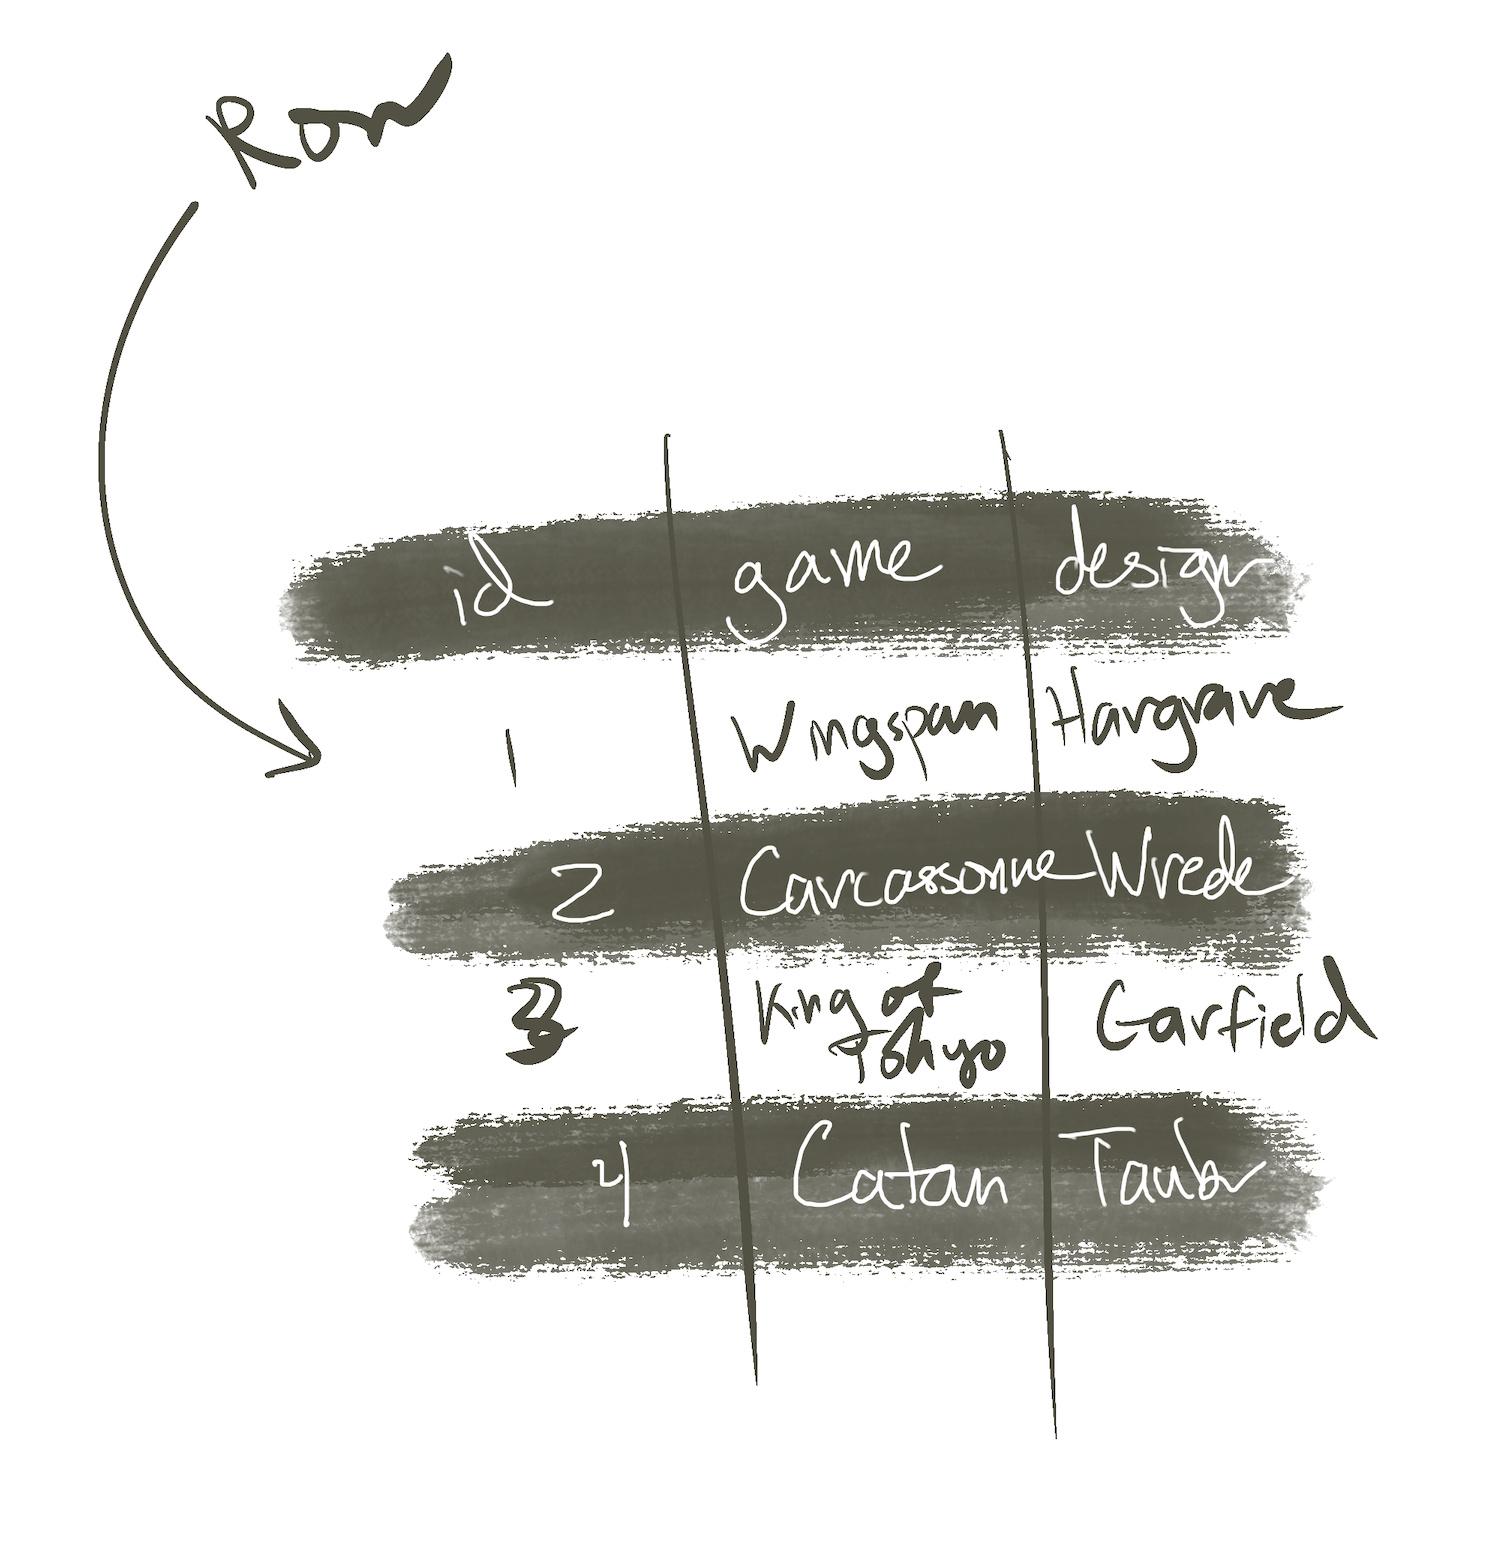 Row
id game design
1 Wingspan Hargrave
2 Carcassonne Wrede
3 King of Tokyo Garfield
4 Catan Taubr